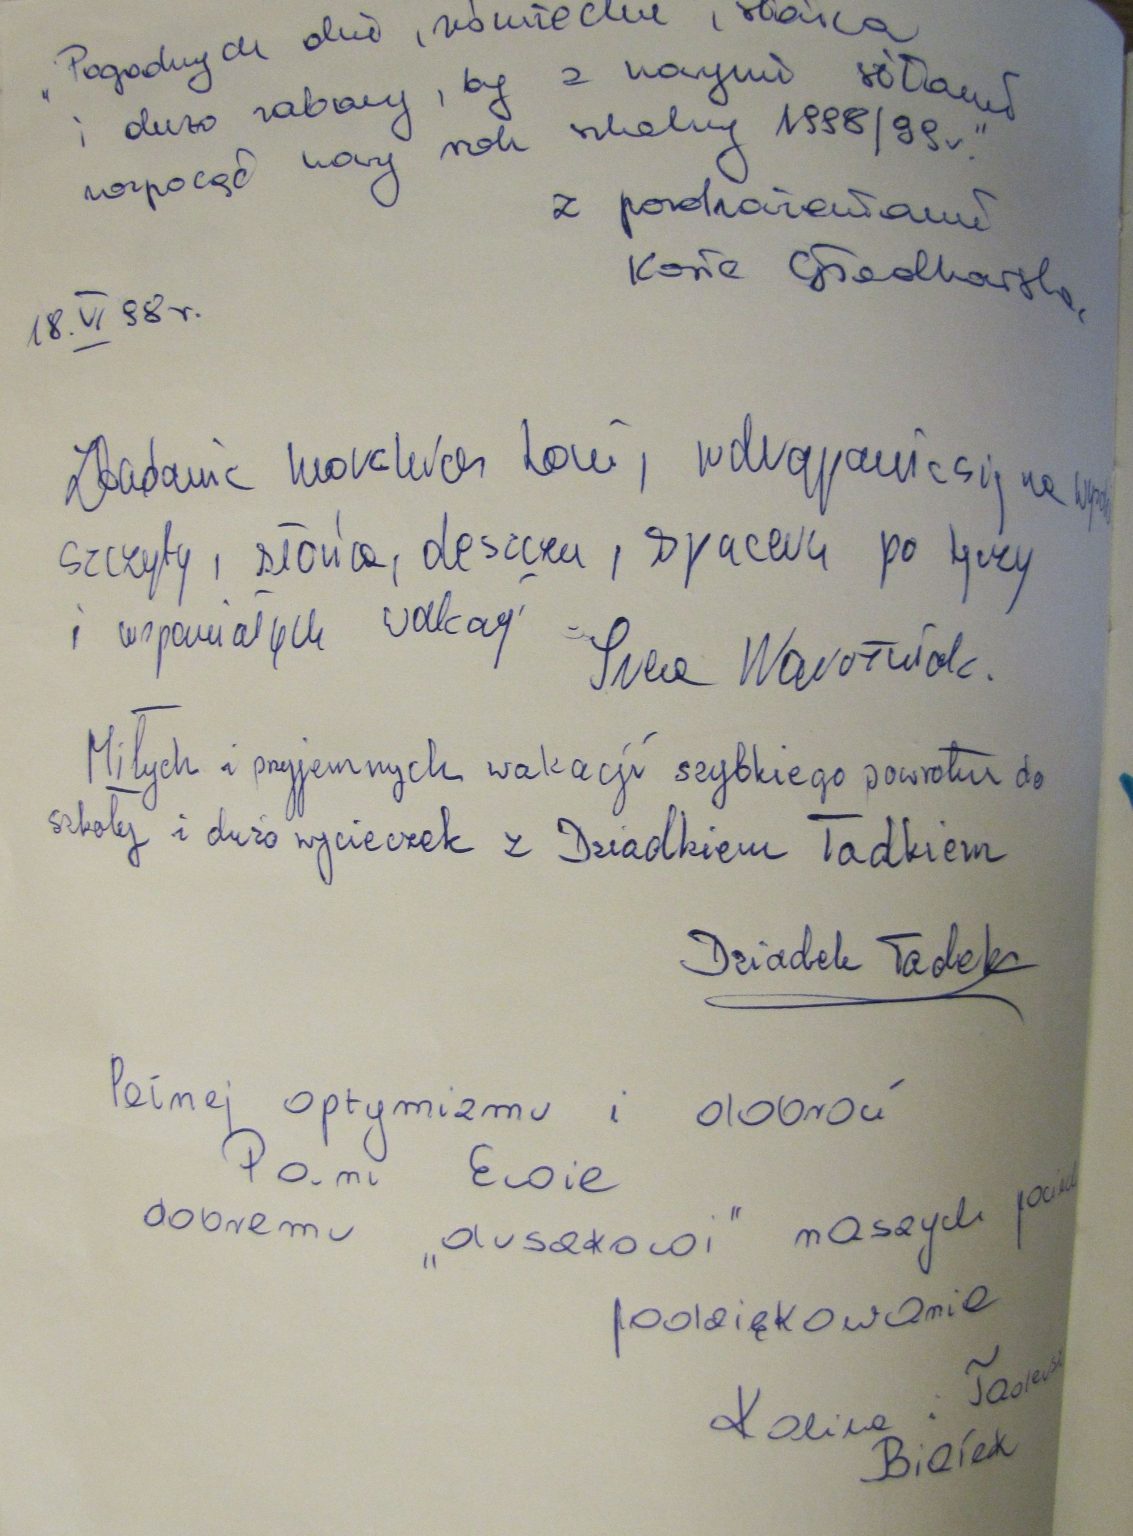 "Pogodnych dni, uśmiechu, słońca
i dużo zabawy, by z nowymi siłami
rozpocząć nowy rok szkolny 1998/99r."
z pozdrowieniami
Kasia
18.VI 98r.
Zbadania morskiego , wdrapania się na
szczyty, słońca, deszczu, spaceru po tęczy
i wspaniałych wakacji
Miłych i przyjemnych wakacji szybkiego powrotu do
szkoły i dużo wycieczek z Dziadkiem Tadkiem
Dziadek Tadek
Pełnej optymizmu i dobroci
Pani Ewie
dobremu „duszkowi" naszych pociech
podziękowanie
Kalina i Tadeusz
Białek